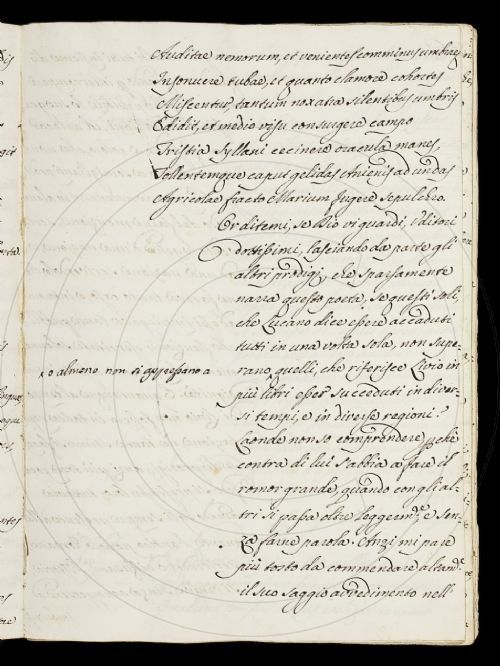 Auditae nemorum, et venientes cominus umbrae
Insonuere tubae, et quanto clamore cohortes
Miscentur tantum nox atra silentibus umbris
Edidit, et medio visu consurgere campo
Tristia Syllani cecinere oracula manes,
Tollentemque caput gelidas Anienis ad undas
Agricolae fracto Marium fugere sepulchro.
Or ditemi, se Dio vi guardi, Uditori
dottissimi, lasciando da parte gli
altri prodigj, che sparsamente
narra questo poeta, se questi soli,
che Lucano dice essere accaduti
tutti in una volta sola, non supe-
x o almeno non si appressano a
rano quelli, che riferisce Livio in
più libri esser succeduti in diver-
si tempi, e in diverse regioni?
Laonde non so comprendere pchè
contra di lui s'abbia a fare il
romor grande, quando con gli al-
tri si passa oltre leggermte e sen-
za farne parola. Anzi mi pare
più tosto da commendare altamte
il suo saggio avvedimento nell'